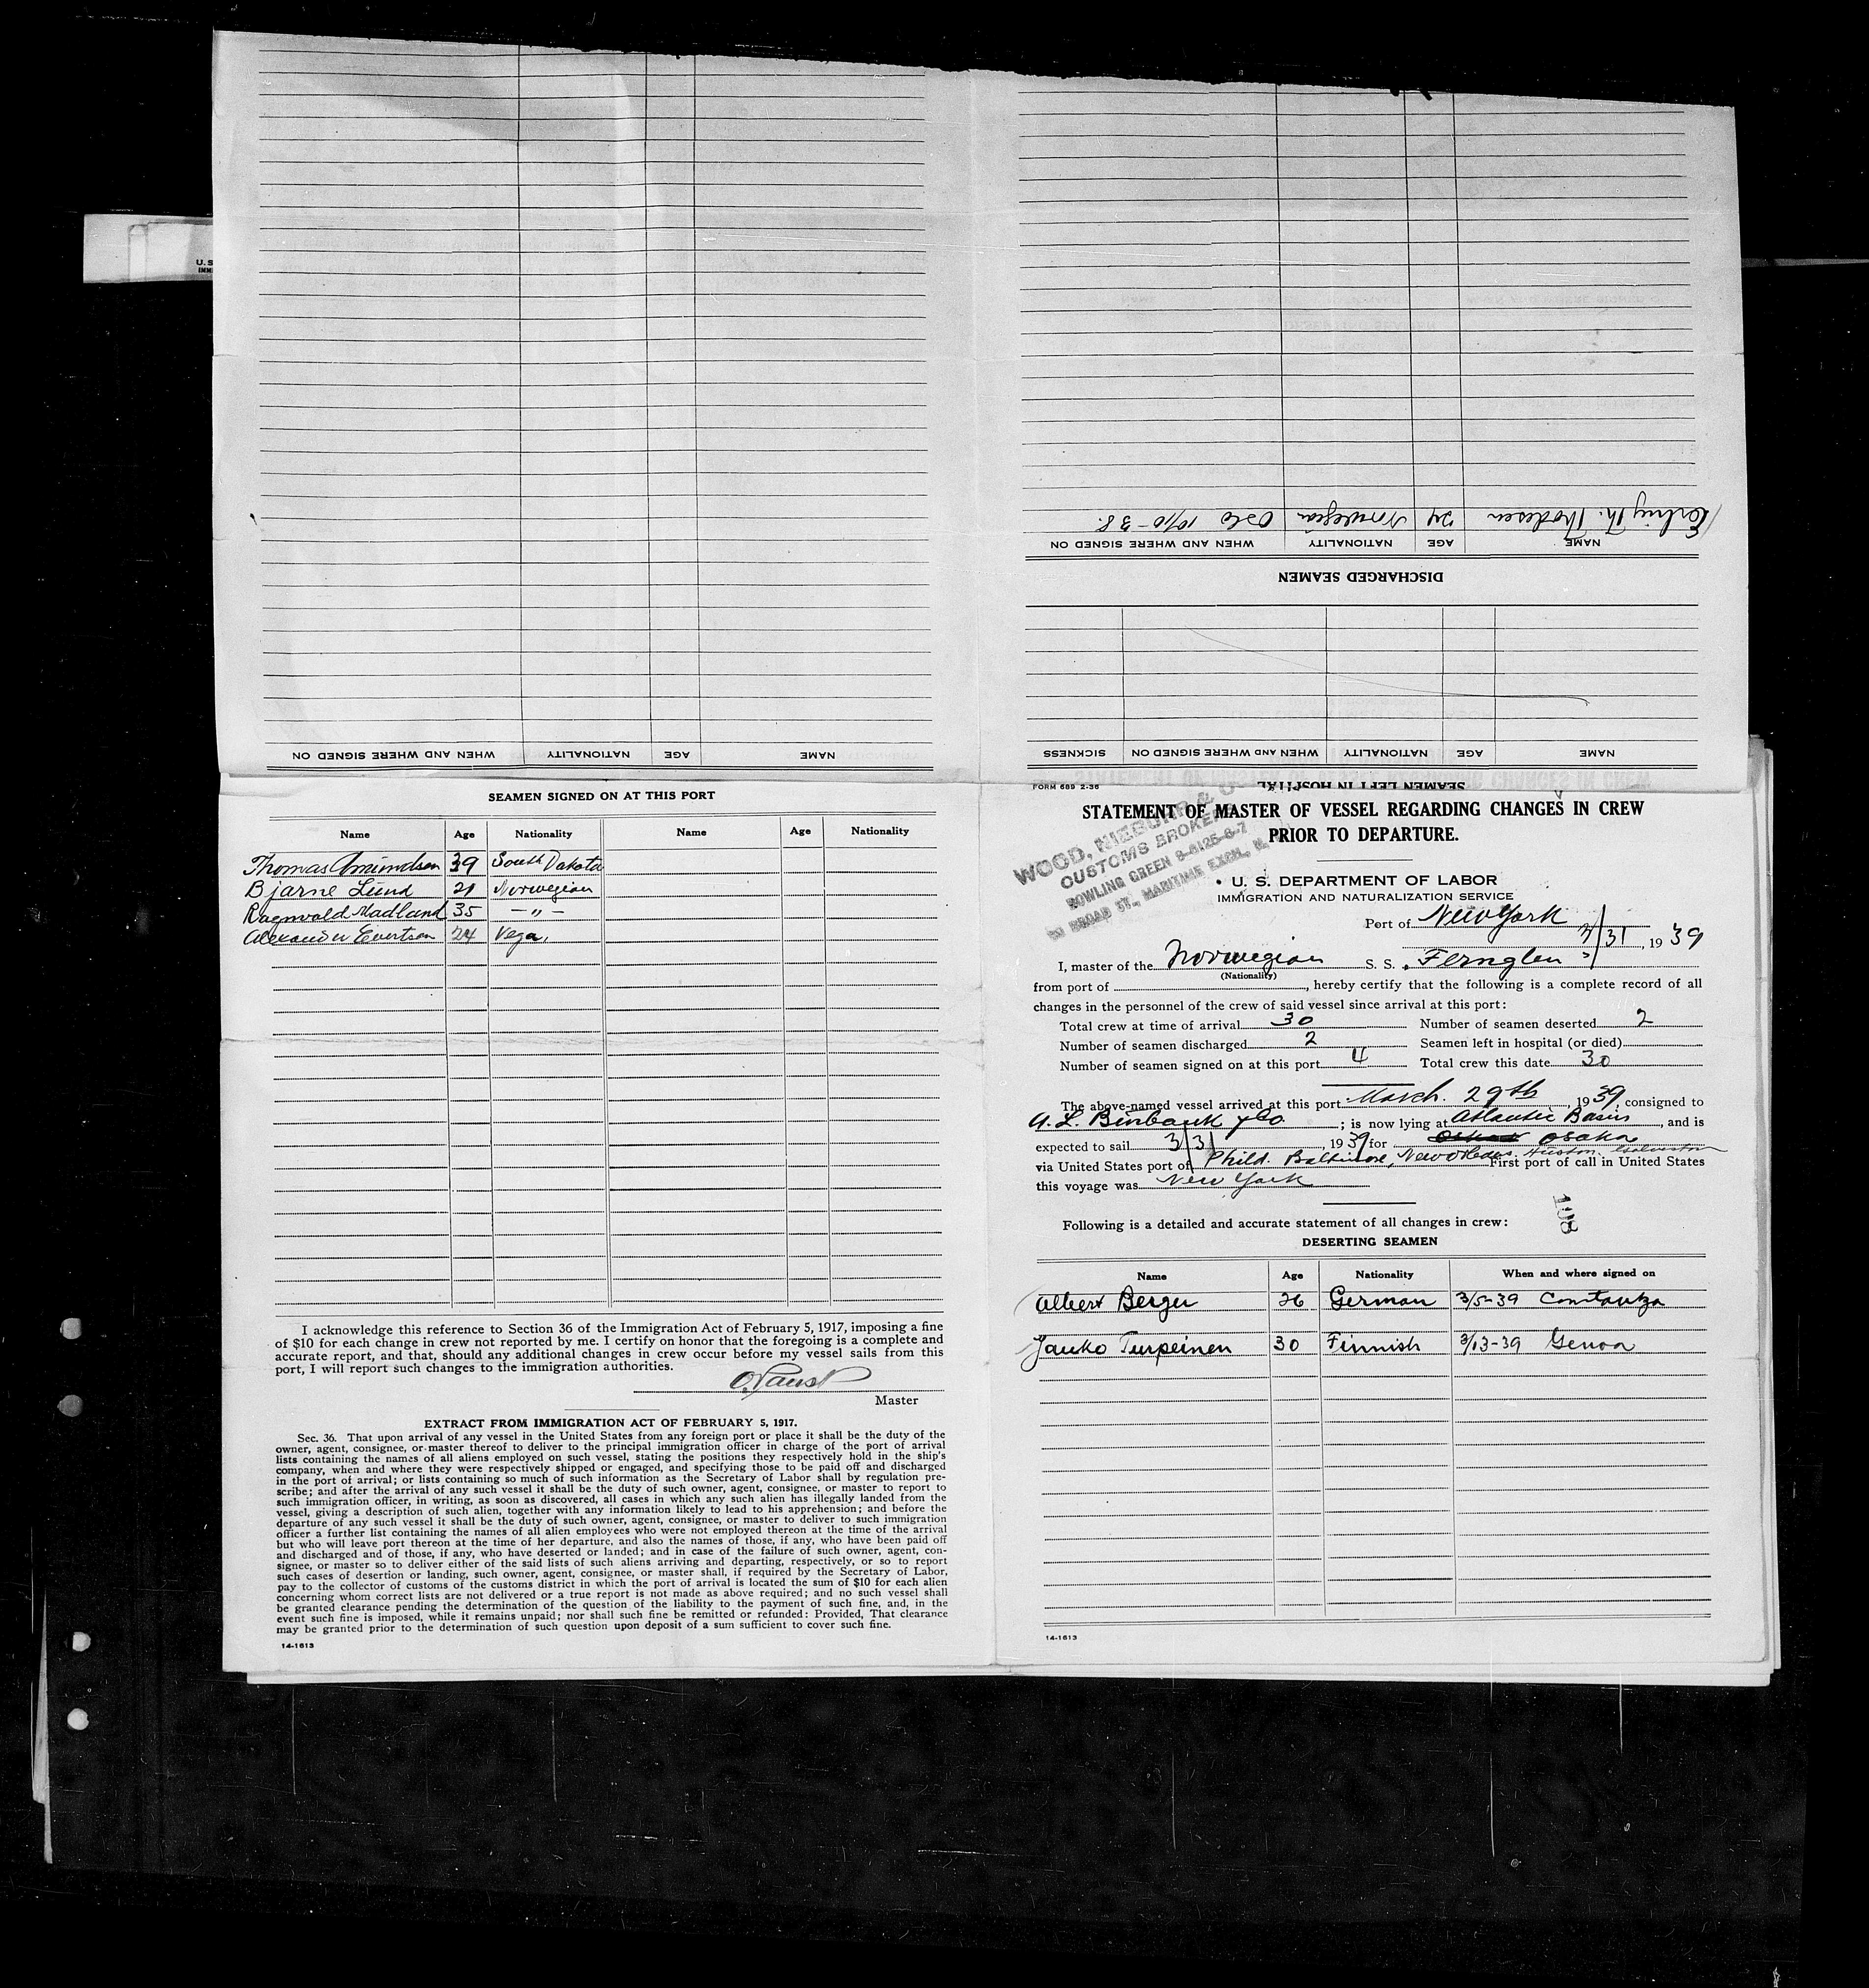 U. S
IMMI
NAME AGE NATIONALITY WHEN AND WHERE SIGNED ON
SEAMEN LEFT IN HOSPITAL
NAME AGE NATIONALITY WHEN AND WHERE SIGNED ON SICKNESS
DISCHARGED SEAMEN
NAME AGE NATIONALITY WHEN AND WHERE SIGNED ON
Erling Th. Thodesen 24 Norwegian Oslo 10/10-38.
SEAMEN SIGNED ON AT THIS PORT
Name Age Nationality Name Age Nationality
Thomas Amundsen 39 South Dakota
Bjarne Lund 21 Norwegian
Ragnvald Madland 35 — " —
Alexander Evertsen 24 Vega.
I acknowledge this reference to Section 36 of the Immigration Act of February 5, 1917, imposing a fine
of $10 for each change in crew not reported by me. I certify on honor that the foregoing is a complete and
accurate report, and that, should any additional changes in crew occur before my vessel sails from this
port, I will report such changes to the immigration authorities.
Master
EXTRACT FROM IMMIGRATION ACT OF FEBRUARY 5, 1917.
Sec. 36. That upon arrival of any vessel in the United States from any foreign port or place it shall be the duty of the
owner, agent, consignee, or master thereof to deliver to the principal immigration officer in charge of the port of arrival
lists containing the names of all aliens employed on such vessel, stating the positions they respectively hold in the ship's
company, when and where they were respectively shipped or engaged, and specifying those to be paid off and discharged
in the port of arrival; or lists containing so much of such information as the Secretary of Labor shall by regulation pre-
scribe; and after the arrival of any such vessel it shall be the duty of such owner, agent, consignee, or master to report to
such immigration officer, in writing, as soon as discovered, all cases in which any such alien has illegally landed from the
vessel, giving a description of such alien, together with any information likely to lead to his apprehension; and before the
departure of any such vessel it shall be the duty of such owner, agent, consignee, or master to deliver to such immigration
officer a further list containing the names of all alien employees who were not employed thereon at the time of the arrival
but who will leave port thereon at the time of her departure, and also the names of those, if any, who have been paid off
and discharged and of those, if any, who have deserted or landed; and in case of the failure of such owner, agent, con-
signee, or master so to deliver either of the said lists of such aliens arriving and departing, respectively, or so to report
such cases of desertion or landing, such owner, agent, consignee, or master shall, if required by the Secretary of Labor,
pay to the collector of customs of the customs district in which the port of arrival is located the sum of $10 for each alien
concerning whom correct lists are not delivered or a true report is not made as above required; and no such vessel shall
be granted clearance pending the determination of the question of the liability to the payment of such fine, and, in the
event such fine is imposed, while it remains unpaid; nor shall such fine be remitted or refunded: Provided, That clearance
may be granted prior to the determination of such question upon deposit of a sum sufficient to cover such fine.
14-1613
FORM 689 2-36
STATEMENT OF MASTER OF VESSEL REGARDING CHANGES IN CREW
PRIOR TO DEPARTURE.
WOOD, NIEBUHR & CO
CUSTOMS BROKERS
BOWLING GREEN 9-8125-6-7
BROAD ST., MARITIME EXCH., N. Y.
U. S. DEPARTMENT OF LABOR
IMMIGRATION AND NATURALIZATION SERVICE
Port of New York
3/31, 1939
I, master of the Norwegian S. S. Fernglen
(Nationality)
from port of , hereby certify that the following is a complete record of all
changes in the personnel of the crew of said vessel since arrival at this port:
Total crew at time of arrival 30 Number of seamen deserted 2
Number of seamen discharged 2 Seamen left in hospital (or died)
Number of seamen signed on at this port 4 Total crew this date 30
The above-named vessel arrived at this port March. 29th, 1939, consigned to
A. L. Burbank & Co. ; is now lying at Atlantic Basin, and is
expected to sail 3/31, 1939 for Osaka
via United States port of Phild. Baltimore, New Orleans, Huston, Galveston First port of call in United States
this voyage was New York
198
Following is a detailed and accurate statement of all changes in crew:
DESERTING SEAMEN
Name Age Nationality When and where signed on
Albert Berger 26 German 3/5-39 Constantza
Jauko Turpeinen 30 Finnish 3/13-39 Genoa
14-1613